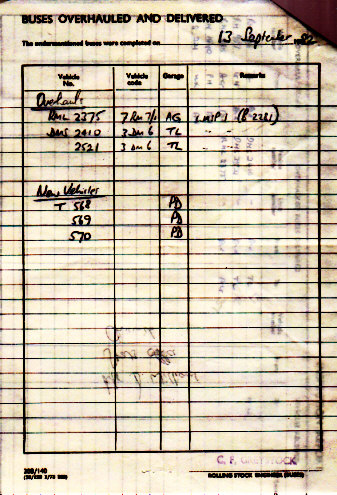 BUSES OVERHAULED AND DELIVERED
The undermentioned buses were completed on 13 September 1982
Vehicle No. Vehicle code Garage Remarks
Overhauls
RML 2375 7RM7/1 AG (B 2281)
DMS 2410 3 DM 6 TL " "
2521 3 DM 6 TL " "
New Vehicles
T 568 PB
569 PB
570 PB
208/140
C. F. GREYSTOCK
ROLLING STOCK ENGINEER (BUSES)